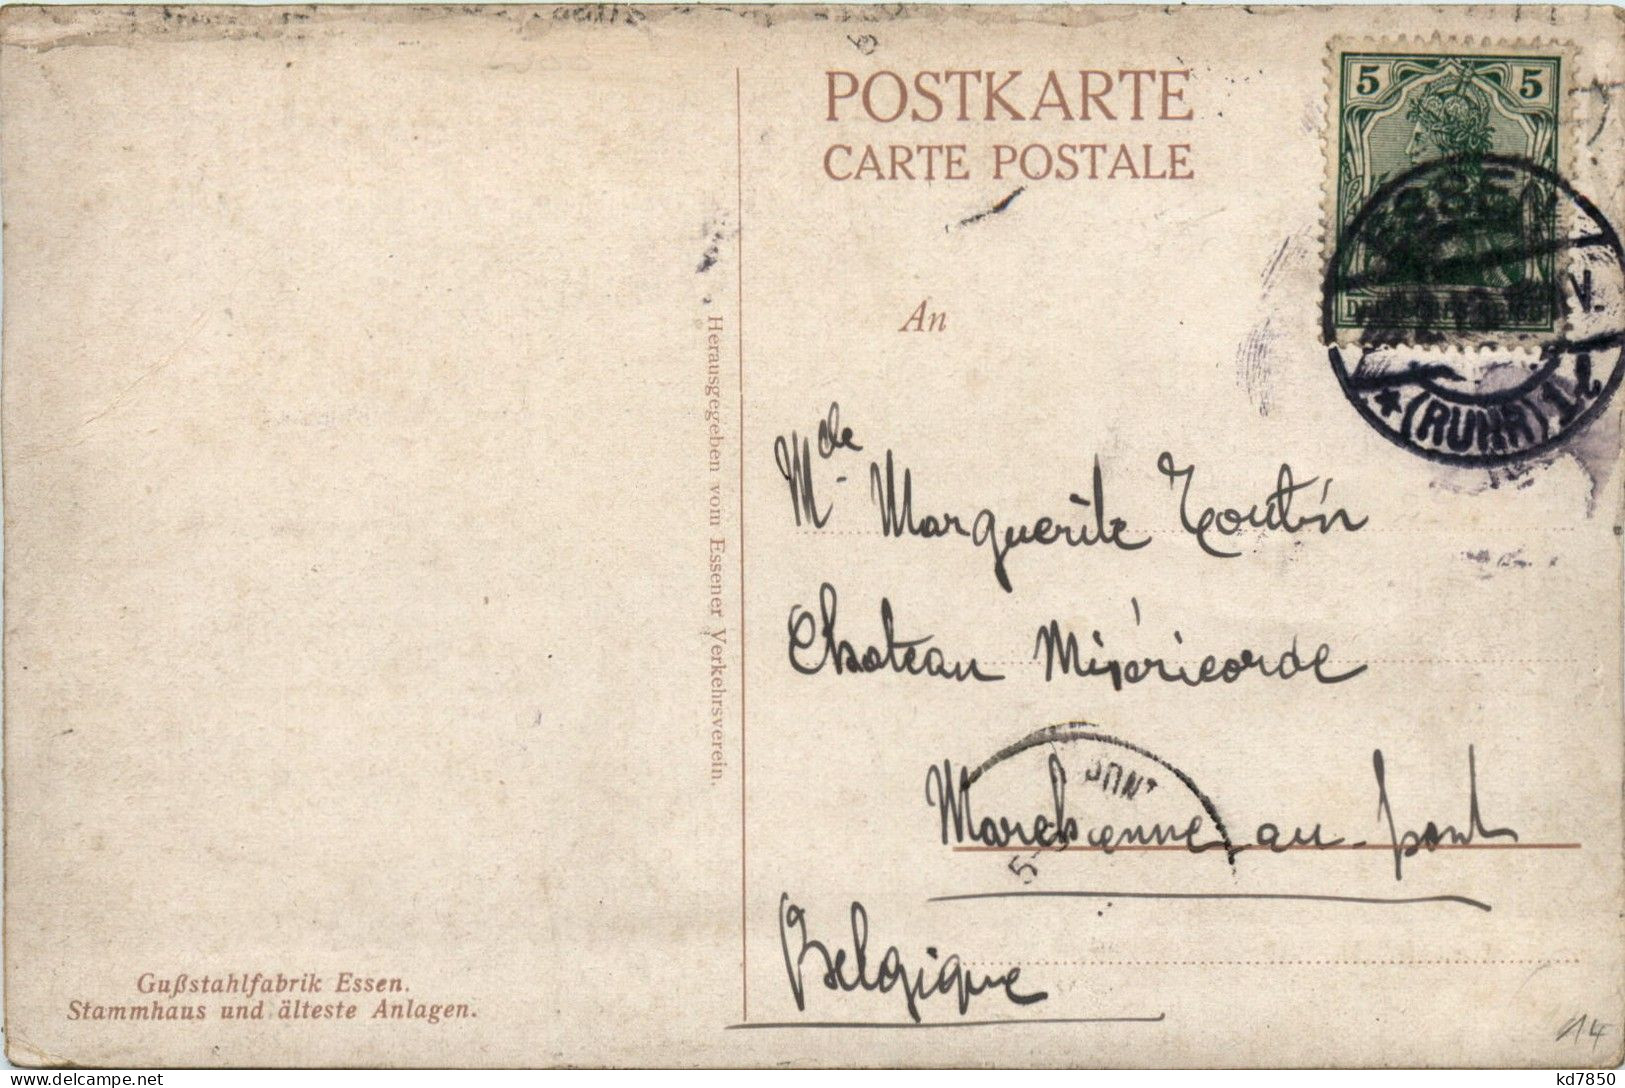 POSTKARTE
CARTE POSTALE
5 5
ESSEN
(RUHR) 1
An
Herausgegeben vom Essener Verkehrsverein.
Mde Marguerite Toutin
Chateau Miséricorde
PONT
Marchienne-au-pont
Belgique
Gußstahlfabrik Essen.
Stammhaus und älteste Anlagen.
14
kd7850